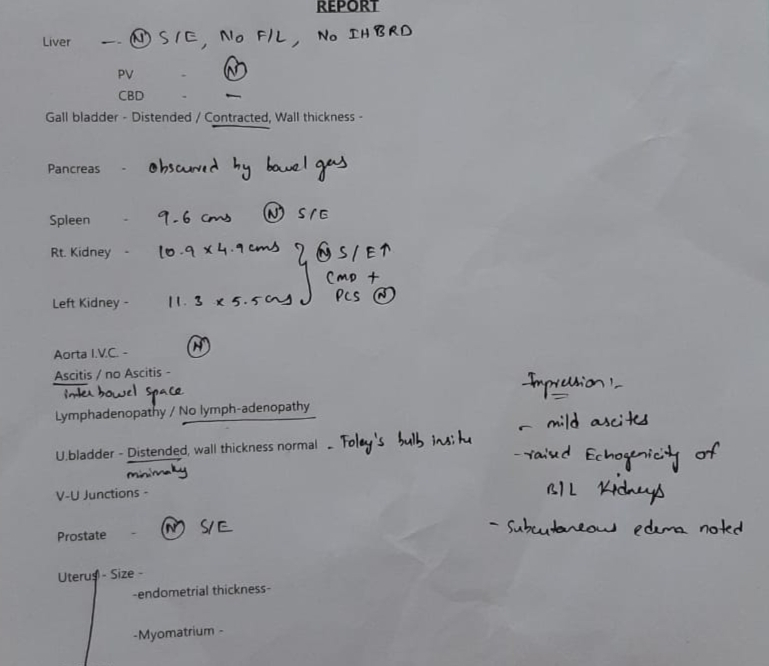 REPORT
Liver — Ⓝ S/E, No F/L, No IHBRD
PV - Ⓝ
CBD - –
Gall bladder - Distended / Contracted, Wall thickness -
Pancreas - obscured by bowel gas
Spleen - 9.6 cms Ⓝ S/E
Rt. Kidney - 10.9 x 4.9 cms } Ⓝ S/E↑
CMD +
Left Kidney - 11.3 x 5.5 cms PCS Ⓝ
Aorta I.V.C. - Ⓝ
Ascitis / no Ascitis -
Inter bowel space
Lymphadenopathy / No lymph-adenopathy
U.bladder - Distended, wall thickness normal - Foley's bulb insitu
minimaly
V-U Junctions -
Prostate - Ⓝ S/E
Uterus - Size -
-endometrial thickness-
-Myomatrium -
Impression :-
- mild ascites
- raised Echogenicity of
B/L Kidneys
- Subcutaneous edema noted